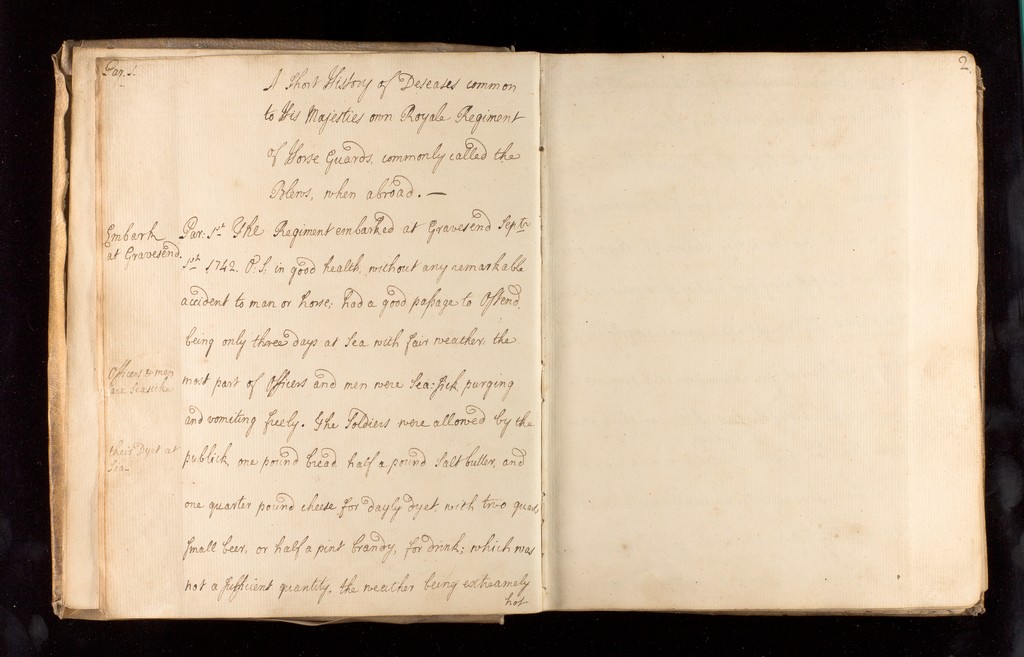 Par. 1.
2
A Short History of Deseases common
to His Majesties own Royale Regiment
of Horse Guards, commonly called the
Blews, when abroad. —
Embark
at Gravesend.
Par: 1st The Regiment embarked at Gravesend Septr
1st 1742. O:S, in good health, without any remarkable
accident to man or horse; had a good passage to Ostend,
being only three days at Sea with fair weather; the
Officers & men
are Seasick
most part of Officers and men were Sea-sick purging
and vomiting freely. The Soldiers were allowed by the
their Dyet at
Sea-
publick, one pound bread half a pound Salt butter, and
one quarter pound cheese for dayly dyet, with two quarts
small beer, or half a pint brandy, for drink; which was
not a sufficient quantity, the weather being extreamely
hot